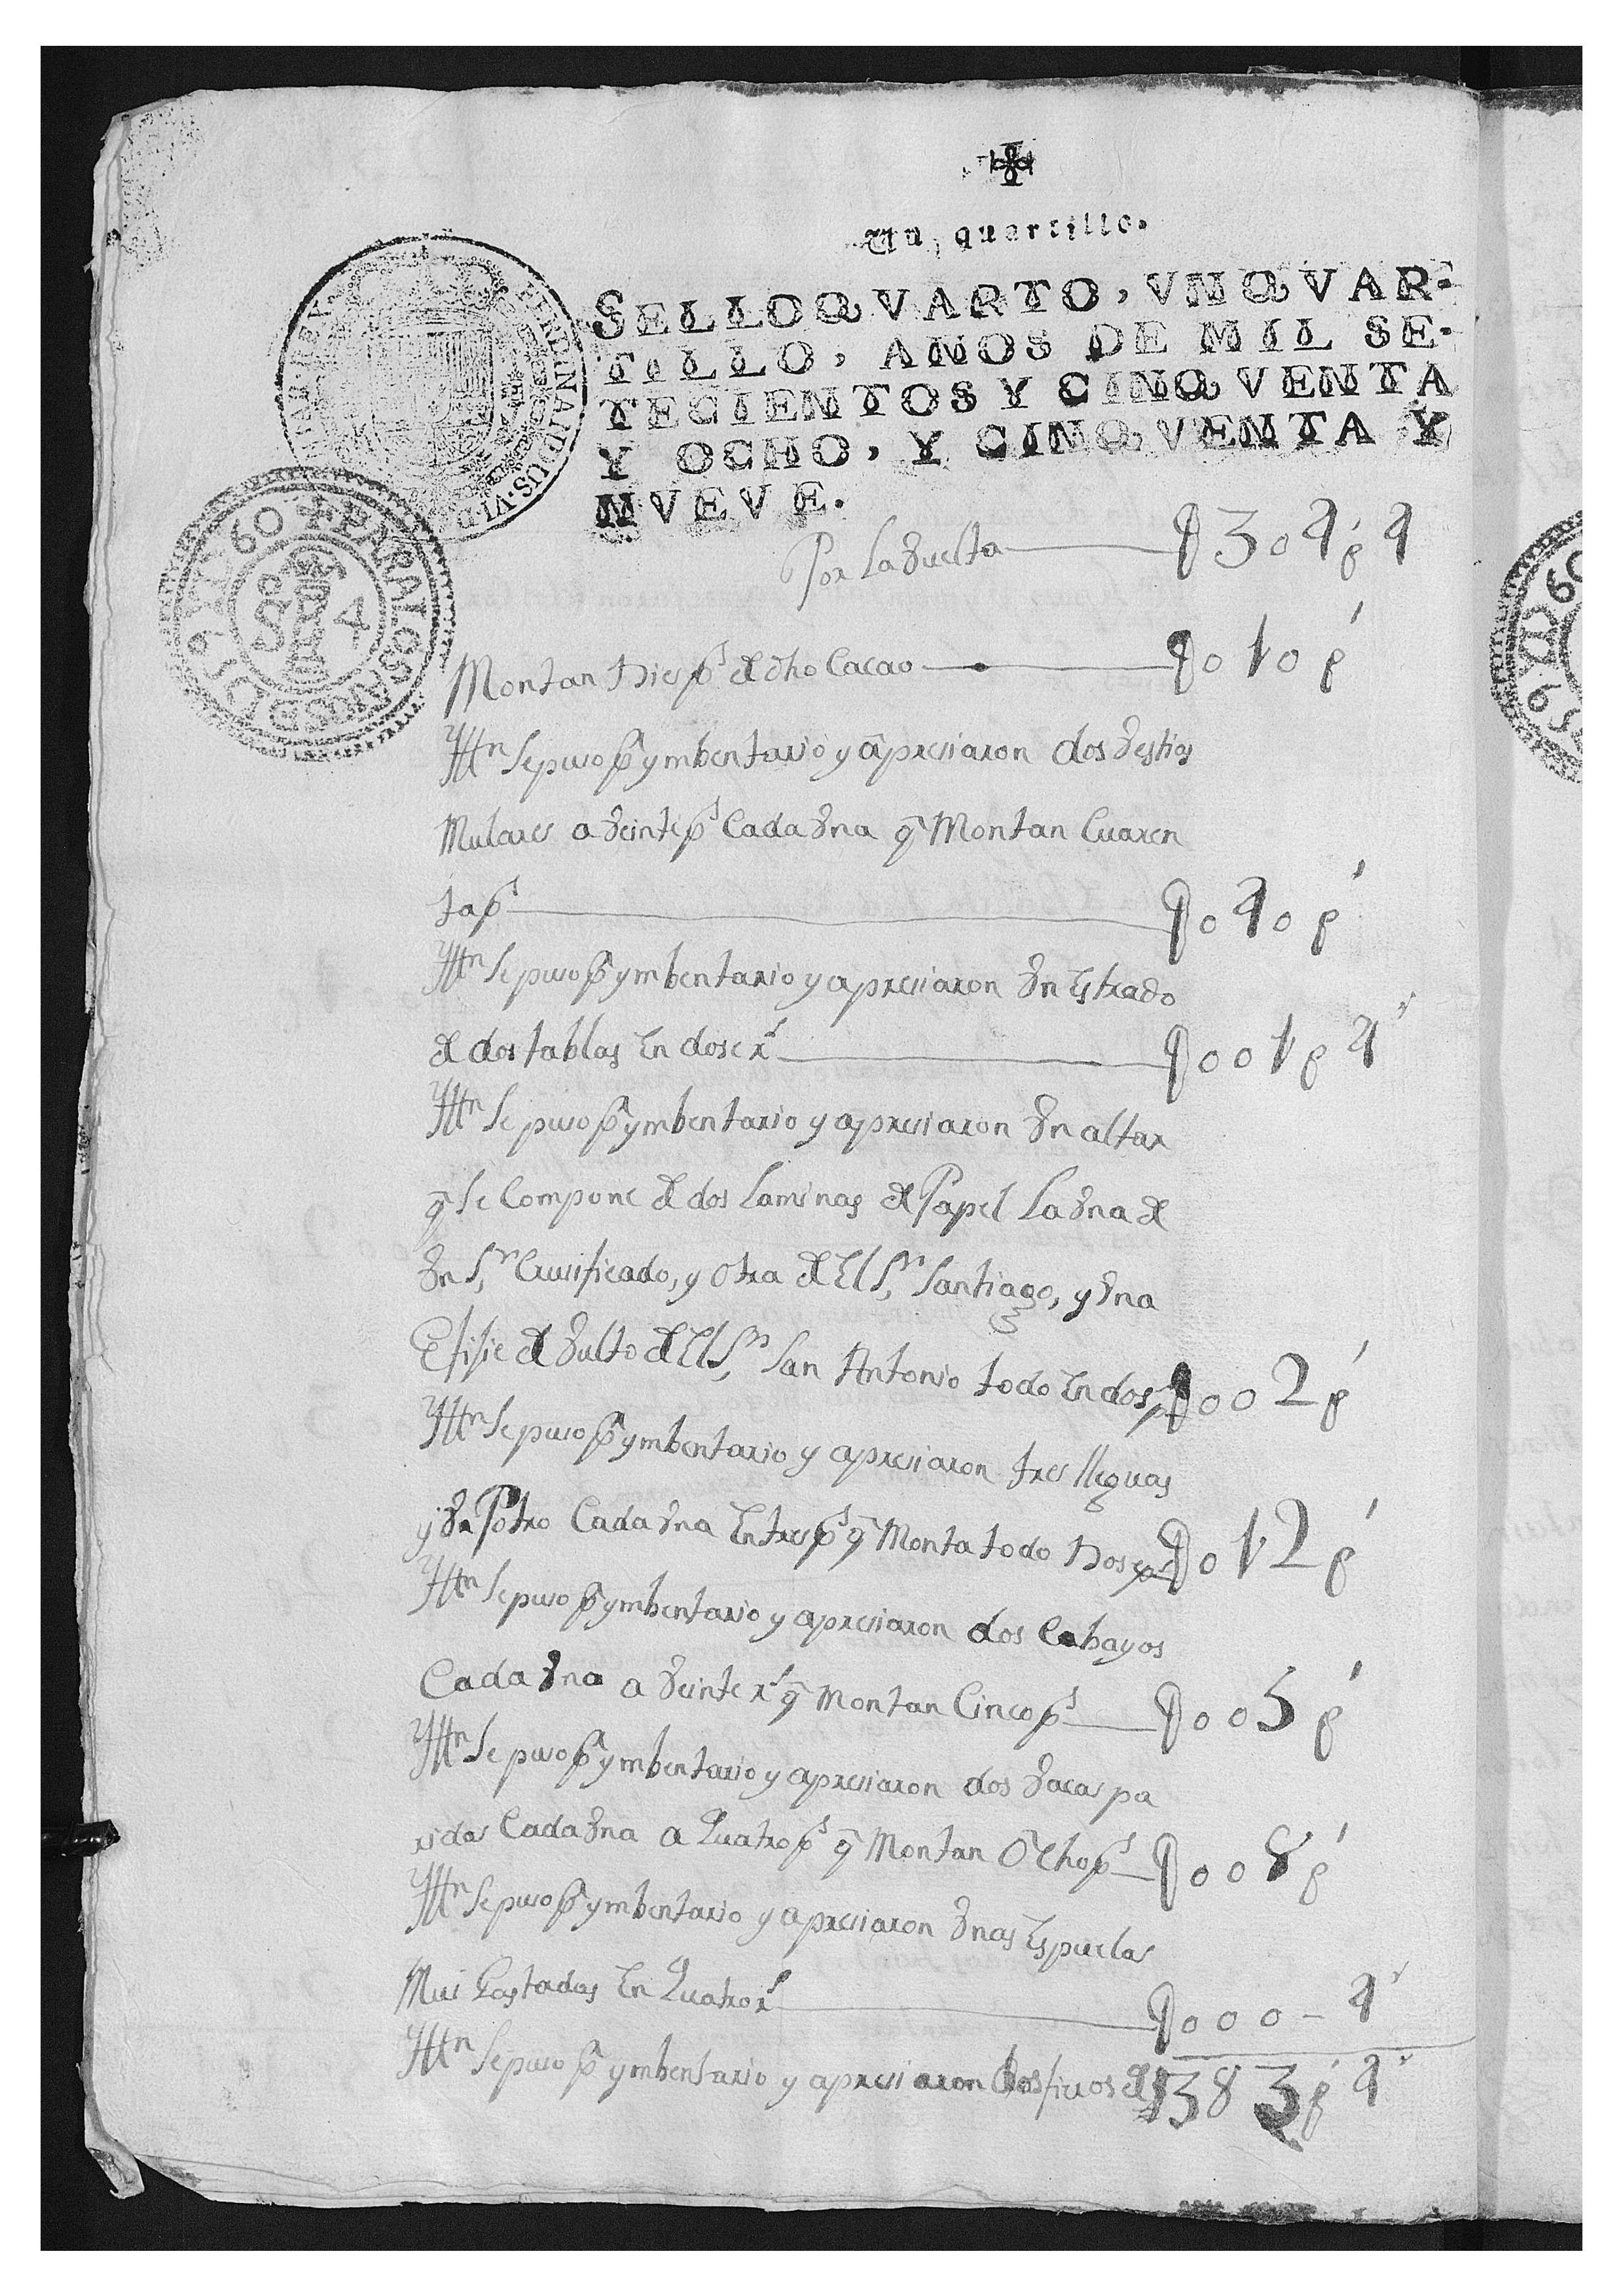 Un quartillo.
SELLO QVARTO, VN QVAR-
TILLO, AÑOS DE MIL SE-
TECIENTOS Y CINQVENTA
Y OCHO, Y CINQVENTA Y
NVEVE.
FERDINANDUS.VI.D
PARA LOS AÑOS D 1759 Y D 60
Por La Vuelta — 304 p 4
Montan Dies ps de dho Cacao — 010 p
Yttn Se puso pr ymbentario y apresiaron dos Vestias
Mulares a Veinte ps Cada Vna q Montan Cuaren
ta ps — 040 p
Yttn Se puso pr ymbentario y apresiaron Vn Estrado
de dos tablas En dose rs — 001 p 4
Yttn Se puso pr ymbentario y apresiaron Vn altar
q Se Compone de dos Laminas de Papel La Vna de
Vn Sr Crusificado, y Otra de El Sr Santiago, y Vna
Efisie de Vulto de El Sr San Antonio todo En dos ps 002 p
Yttn Se puso pr ymbentario y apresiaron tres lleguas
y Vn Potro Cada Vna En tres ps q Monta todo Dose ps 012 p
Yttn Se puso pr ymbentario y apresiaron dos Cabayos
Cada Vna a Veinte rs q Montan Cinco ps — 005 p
Yttn Se puso pr ymbentario y apresiaron dos Vacas pa
ridas Cada Vna a Quatro ps q Montan Ocho ps — 008 p
Yttn Se puso pr ymbentario y apresiaron Vnas Espuelas
Mui Gastadas En Quatro rs — 000 - 4
Yttn Se puso pr ymbentario y apresiaron dos fierros de 383 p 4